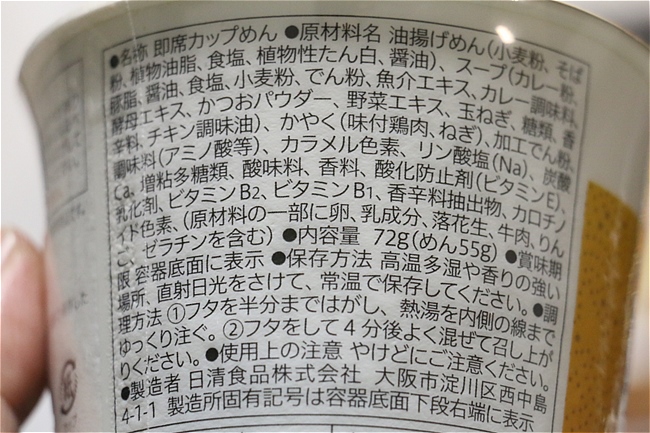 ●名称 即席カップめん ●原材料名 油揚げめん(小麦粉、そば
粉、植物油脂、食塩、植物性たん白、醤油)、スープ(カレー粉、
豚脂、醤油、食塩、小麦粉、でん粉、魚介エキス、カレー調味料、
酵母エキス、かつおパウダー、野菜エキス、玉ねぎ、糖類、香
辛料、チキン調味油)、かやく(味付鶏肉、ねぎ)、加工でん粉、
調味料(アミノ酸等)、カラメル色素、リン酸塩(Na)、炭酸
Ca、増粘多糖類、酸味料、香料、酸化防止剤(ビタミンE)、
乳化剤、ビタミンB2、ビタミンB1、香辛料抽出物、カロチノ
イド色素、(原材料の一部に卵、乳成分、落花生、牛肉、りん
ご、ゼラチンを含む) ●内容量 72g(めん55g) ●賞味期
限 容器底面に表示 ●保存方法 高温多湿や香りの強い
場所、直射日光をさけて、常温で保存してください。●調
理方法 ①フタを半分まではがし、熱湯を内側の線まで
ゆっくり注ぐ。②フタをして4分後よく混ぜて召し上が
りください。●使用上の注意 やけどにご注意ください。
●製造者 日清食品株式会社 大阪市淀川区西中島
4-1-1 製造所固有記号は容器底面下段右端に表示